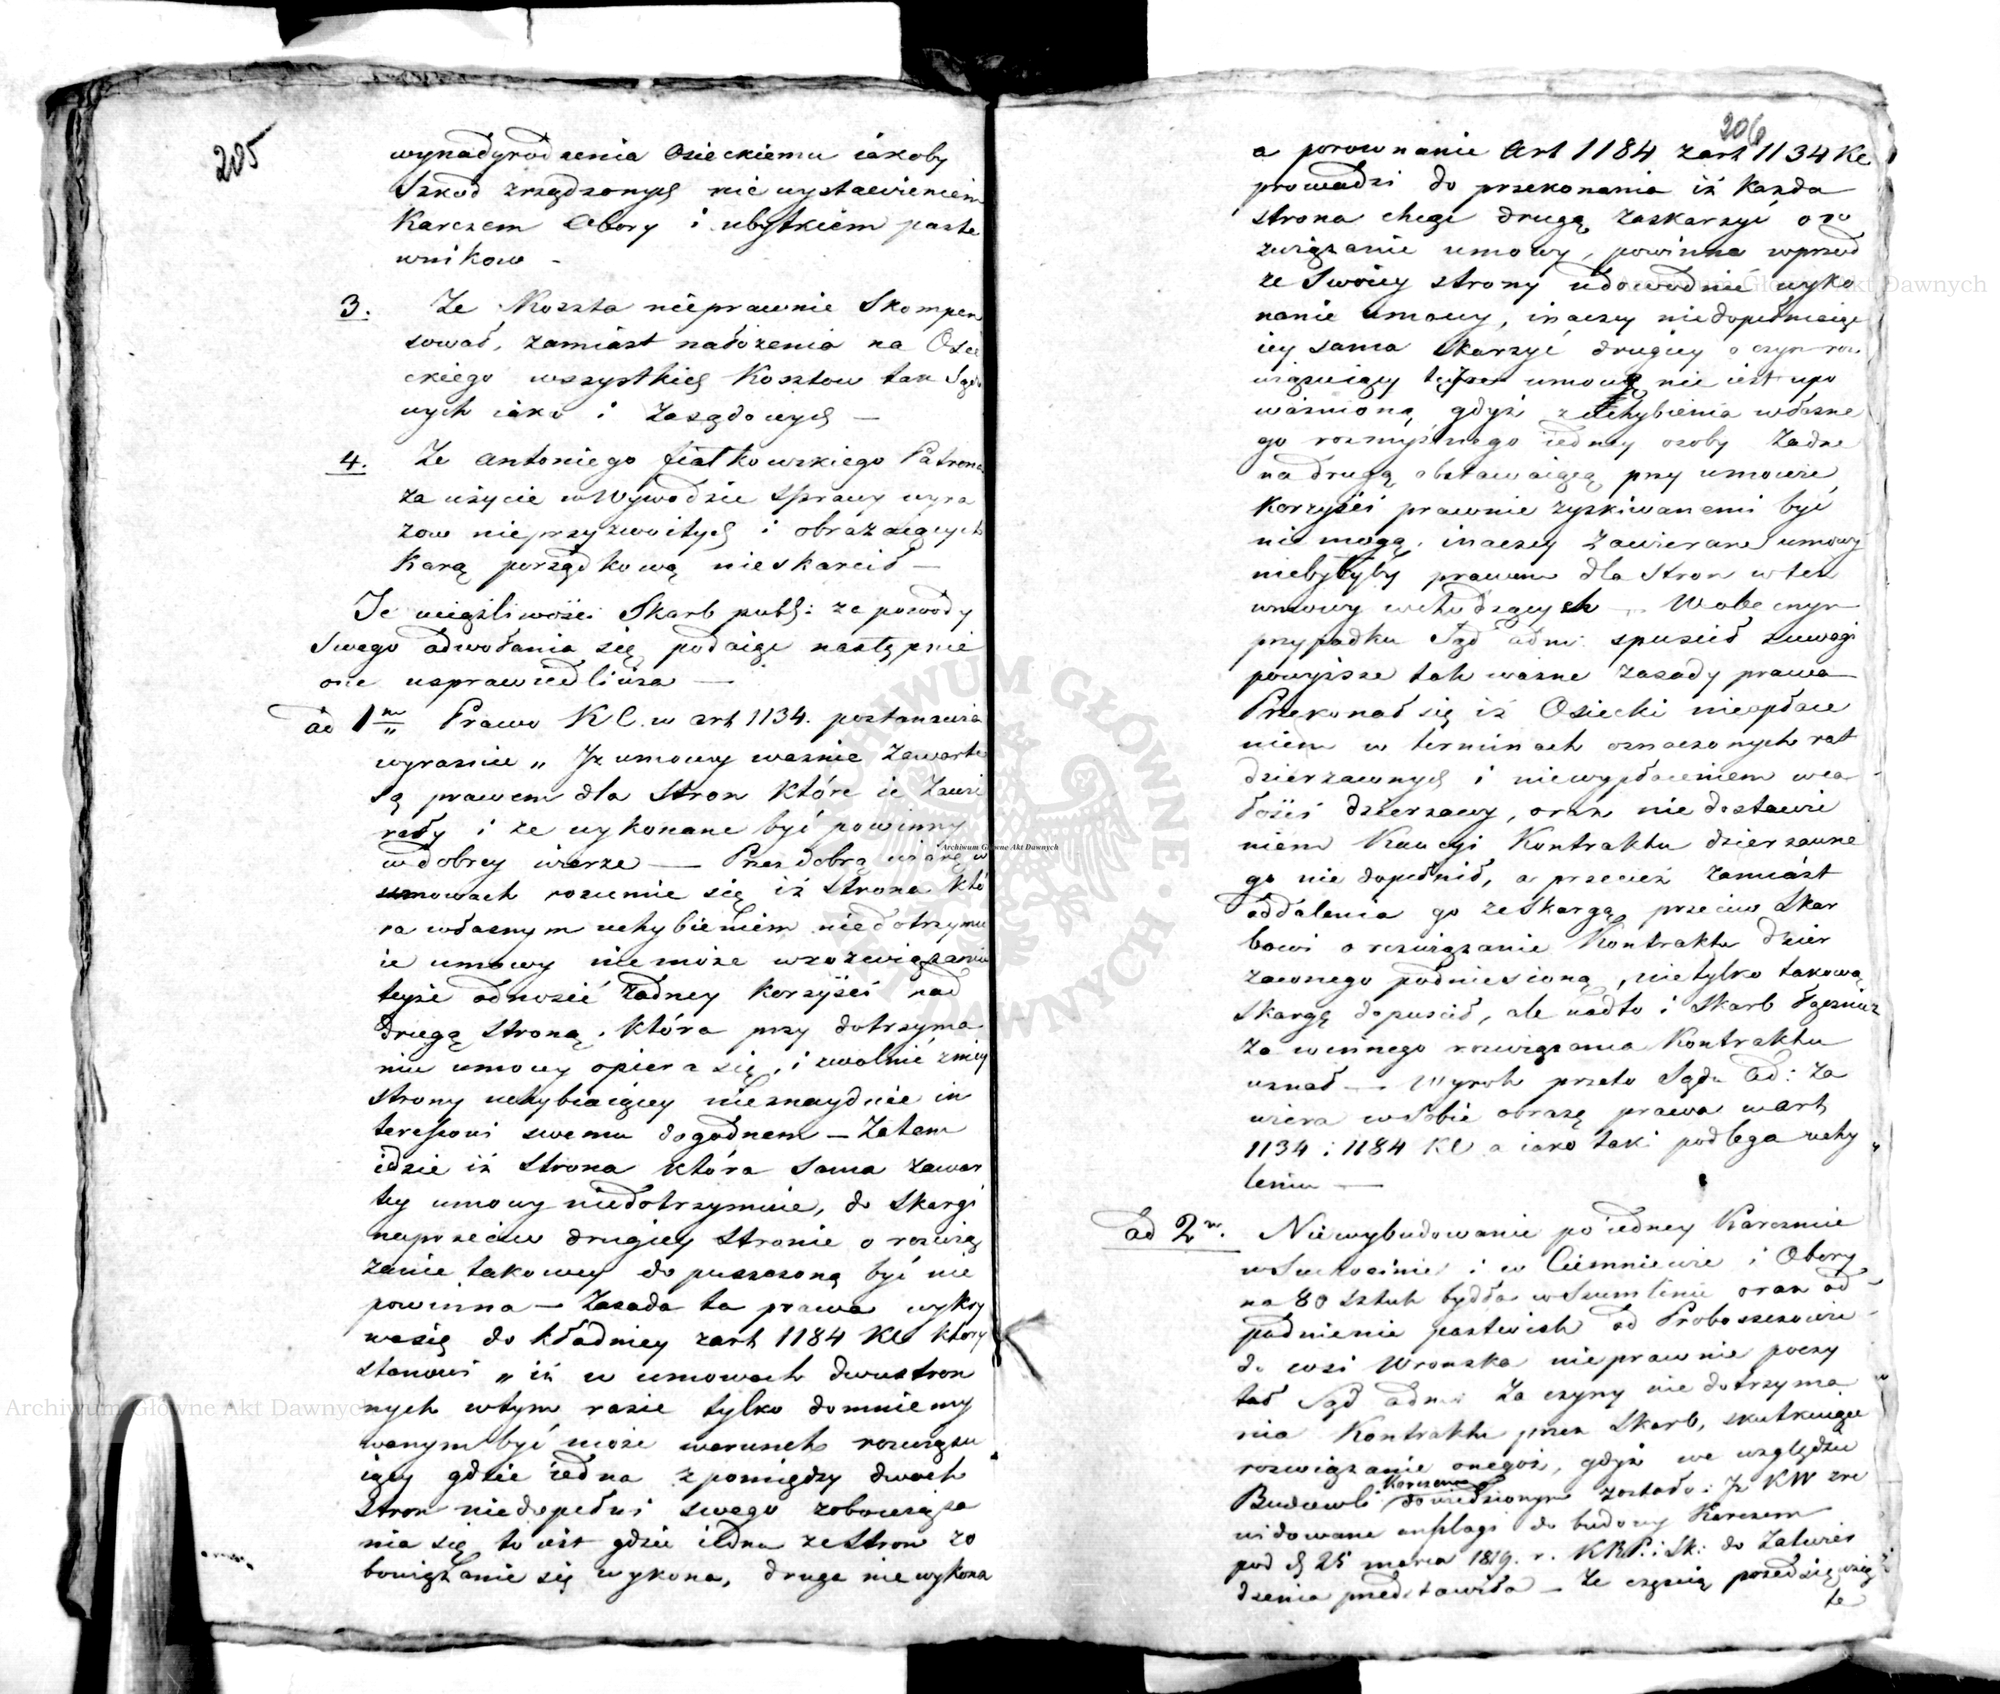 205
wynadgrodzenia Osieckiemu iakoby
Szkod zrządzonych niewystawieniem
Karczem Obory i ubytkiem paste
wnikow –
3. Ze Koszta nieprawnie Skompen
sował, zamiast nałożenia na Osie
ckiego wszystkich Kosztow tak Sądo
wych iako i Zasądowych —
4. Ze Antoniego Fiałkowskiego Patrona
za użycie w Wywodzie Sprawy wyra
zow nieprzyzwoitych i obrażaiących
Karą porządkową nieskarcił —
Te uciążliwości Skarb publ: za powody
Swego odwołania się podaiąc następnie
one usprawiedliwia —
ad 1m Prawo K C. w art 1134. postanawia
wyraznie „ Iż umowy ważnie Zawarte
są prawem dla Stron Które ie Zawie
rały i że wykonane być powinny
w dobrey wierze — Przez dobrą wiarę w
umowach rozumie się iż Strona któ
ra własnym uchybieniem niedotrzymu
ie umowy niemoże w rozwiązaniu
teyże odnosić żadney Korzyści nad
drugą stroną, Która przy dotrzyma
niu umowy opiera się, i uwolnić z niey
strony uchybiaiącey nieznayduie in
teressowi swemu dogodnem — Zatem
idzie iż Strona która Sama zawar
tey umowy niedotrzymuie, do Skargi
naprzeciw drugiey Stronie o rozwią
zanie takowey dopuszczoną być nie
powinna — Zasada ta prawa wykry
wa się dokładniey z art 1184 KC Który
stanowi „ iż w umowach dwustron
nych w tym razie tylko domniemy
wanym być może warunek rozwiązu
iący gdzie iedna z pomiędzy dwoch
Stron niedopełni swego zobowiąza
nia się to iest gdzie iedna ze Stron zo
bowiązanie się wykona, druga niewykona
206
a porownanie Art 1184 z art 1134 KC
prowadzi do przekonania iż Każda
strona chcąc drugą zaskarzyć o ro
związanie umowy, powinna wprzod
ze Swoiey strony udowodnić wyko
nanie umowy, inaczey niedopełniaiąc
iey sama Skarzyć drugiey o czyn roz
wiązuiący tęże umowę nie iest upo
ważnioną, gdyż z uchybienia własne
go rozmyślnego iedney osoby żadne
na drugą obstawaiącą przy umowie
Korzyści prawnie zyskiwanemi być
nie mogą, inaczey Zawierane umowy
niebyłyby prawem dla Stron w też
umowy wchodzących — W obecnym
przypadku Sąd adm: spuścił z uwagi
powyższe tak ważne Zasady prawa
Przekonał się iż Osiecki nieopłace
niem w terminach oznaczonych rat
dzierzawnych i niewypłaceniem wca
łości dzierzawy, oraz niedostawie
niem Kaucyi Kontraktu dzierzawne
go nie dopełnił, a przecież zamiast
oddalenia go ze Skargą przeciw Skar
bowi o rozwiązanie Kontraktu dzier
zawnego podniesioną, nietylko takową
Skargę dopuścił, ale nadto i Skarb
za winnego rozwiązania Kontraktu
uznał — Wyrok przeto Sądu Ad: Za
wiera w Sobie obrazę prawa w art
1134 i 1184 KC a iako taki podlega uchy
leniu —
ad 2m. Niewybudowanie po iedney Karczmie
w Suchocinie i w Ciemniewie i Obory
na 80 sztuk bydła w Sumlinie oraz od
padnienie pastwisk od Proboszczowie
do wsi Wronska nieprawnie poczy
tał Sąd adm: Za czyny niedotrzyma
nia Kontraktu przez Skarb, skutkuiące
rozwiązanie onegoż, gdyż we względzie
Budowli Karczem dowiedzionym zostało: Iż KW zre
widowane anszlagi do budowy Karczem
pod d 25 marca 1819. r. KRP. i Sk: do Zatwier
dzenia przedstawiła — Ze częścią przedsięwzię
te